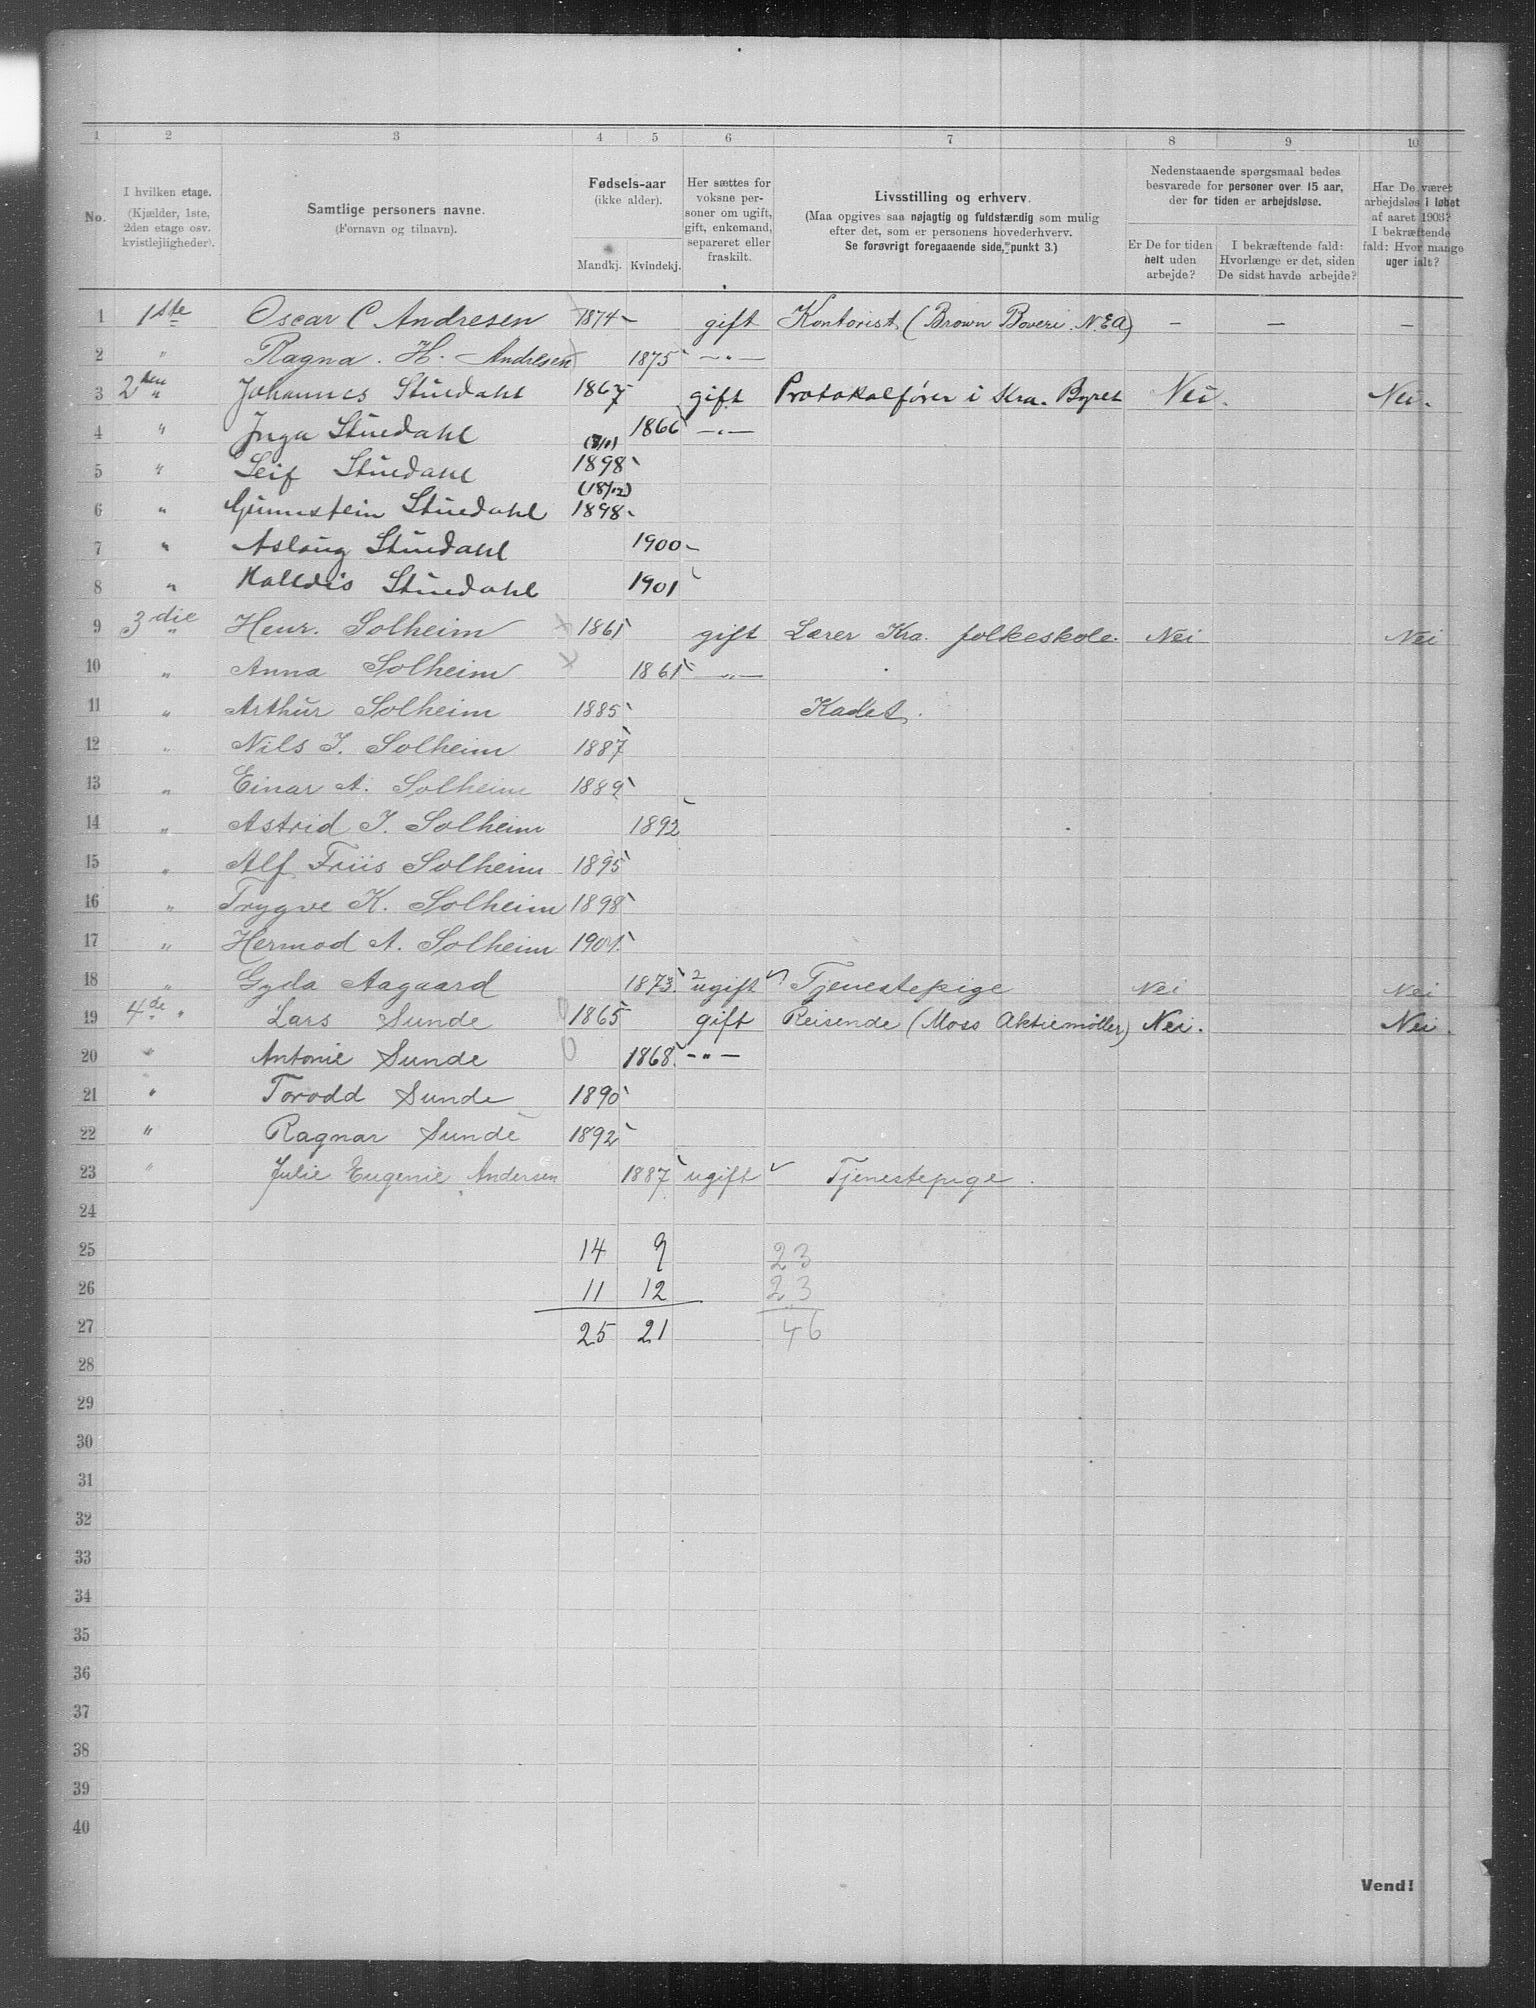 1 2 3 4 5 6 7 8 9 10
No.
I hvilken etage.
(Kjælder, 1ste,
2den etage osv.
kvistlejligheder).
Samtlige personers navne.
(Fornavn og tilnavn).
Fødsels-aar
(ikke alder).
Mandkj. Kvindekj.
Her sættes for
voksne per-
soner om ugift,
gift, enkemand,
separeret eller
fraskilt.
Livsstilling og erhverv.
(Maa opgives saa nøjagtig og fuldstærdig som mulig
efter det, som er personens hovederhverv.
Se forøvrigt foregaaende side, punkt 3.)
Nedenstaaende spørgsmaal bedes
besvarede for personer over 15 aar,
der for tiden er arbejdsløse.
Er De for tiden
helt uden
arbejde?
I bekræftende fald:
Hvorlænge er det, siden
De sidst havde arbejde?
Har De været
arbejdsløs i løbet
af aaret 1903?
I bekræftende
fald: Hvor mange
uger ialt?
1 1ste Oscar C Andresen 1874 gift Kontorist (Brown Boveri. N.E.A) — — —
2 " Ragna. H. Andresen 1875 —"—
3 2den " Johannes Stuedahl 1867 gift Protokolfører i Kra. Byret Nei. Nei.
4 " Inga Stuedahl 1866 —"—
5 " Leif Stuedahl (8/1) 1898
6 " Gunnstein Stuedahl (18/12) 1898
7 " Aslaug Stuedahl 1900
8 " Halldis Stuedahl 1901
9 3die " Henr. Solheim × 1861 gift Lærer Kra. folkeskole. Nei Nei
10 " Anna Solheim × 1861 —"—
11 " Arthur Solheim 1885 Kadet.
12 " Nils J. Solheim 1887
13 " Einar A. Solheim 1889
14 " Astrid J. Solheim 1892
15 " Alf Friis Solheim 1895
16 " Trygve K. Solheim 1898
17 " Hermod A. Solheim 1901.
18 " Gyda Aagaard 1873. ugift Tjenestepige Nei Nei
19 4de " Lars Sunde 1865 gift Reisende (Moss Aktiemøller) Nei. Nei.
20 " Antonie Sunde 1868. —"—
21 " Torodd Sunde 1890
22 " Ragnar Sunde 1892
23 " Julie Eugenie Andersen 1887 ugift Tjenestepige.
24
25 14 9 23
26 11 12 23
27 25 21 46
28
29
30
31
32
33
34
35
36
37
38
39
40
Vend!